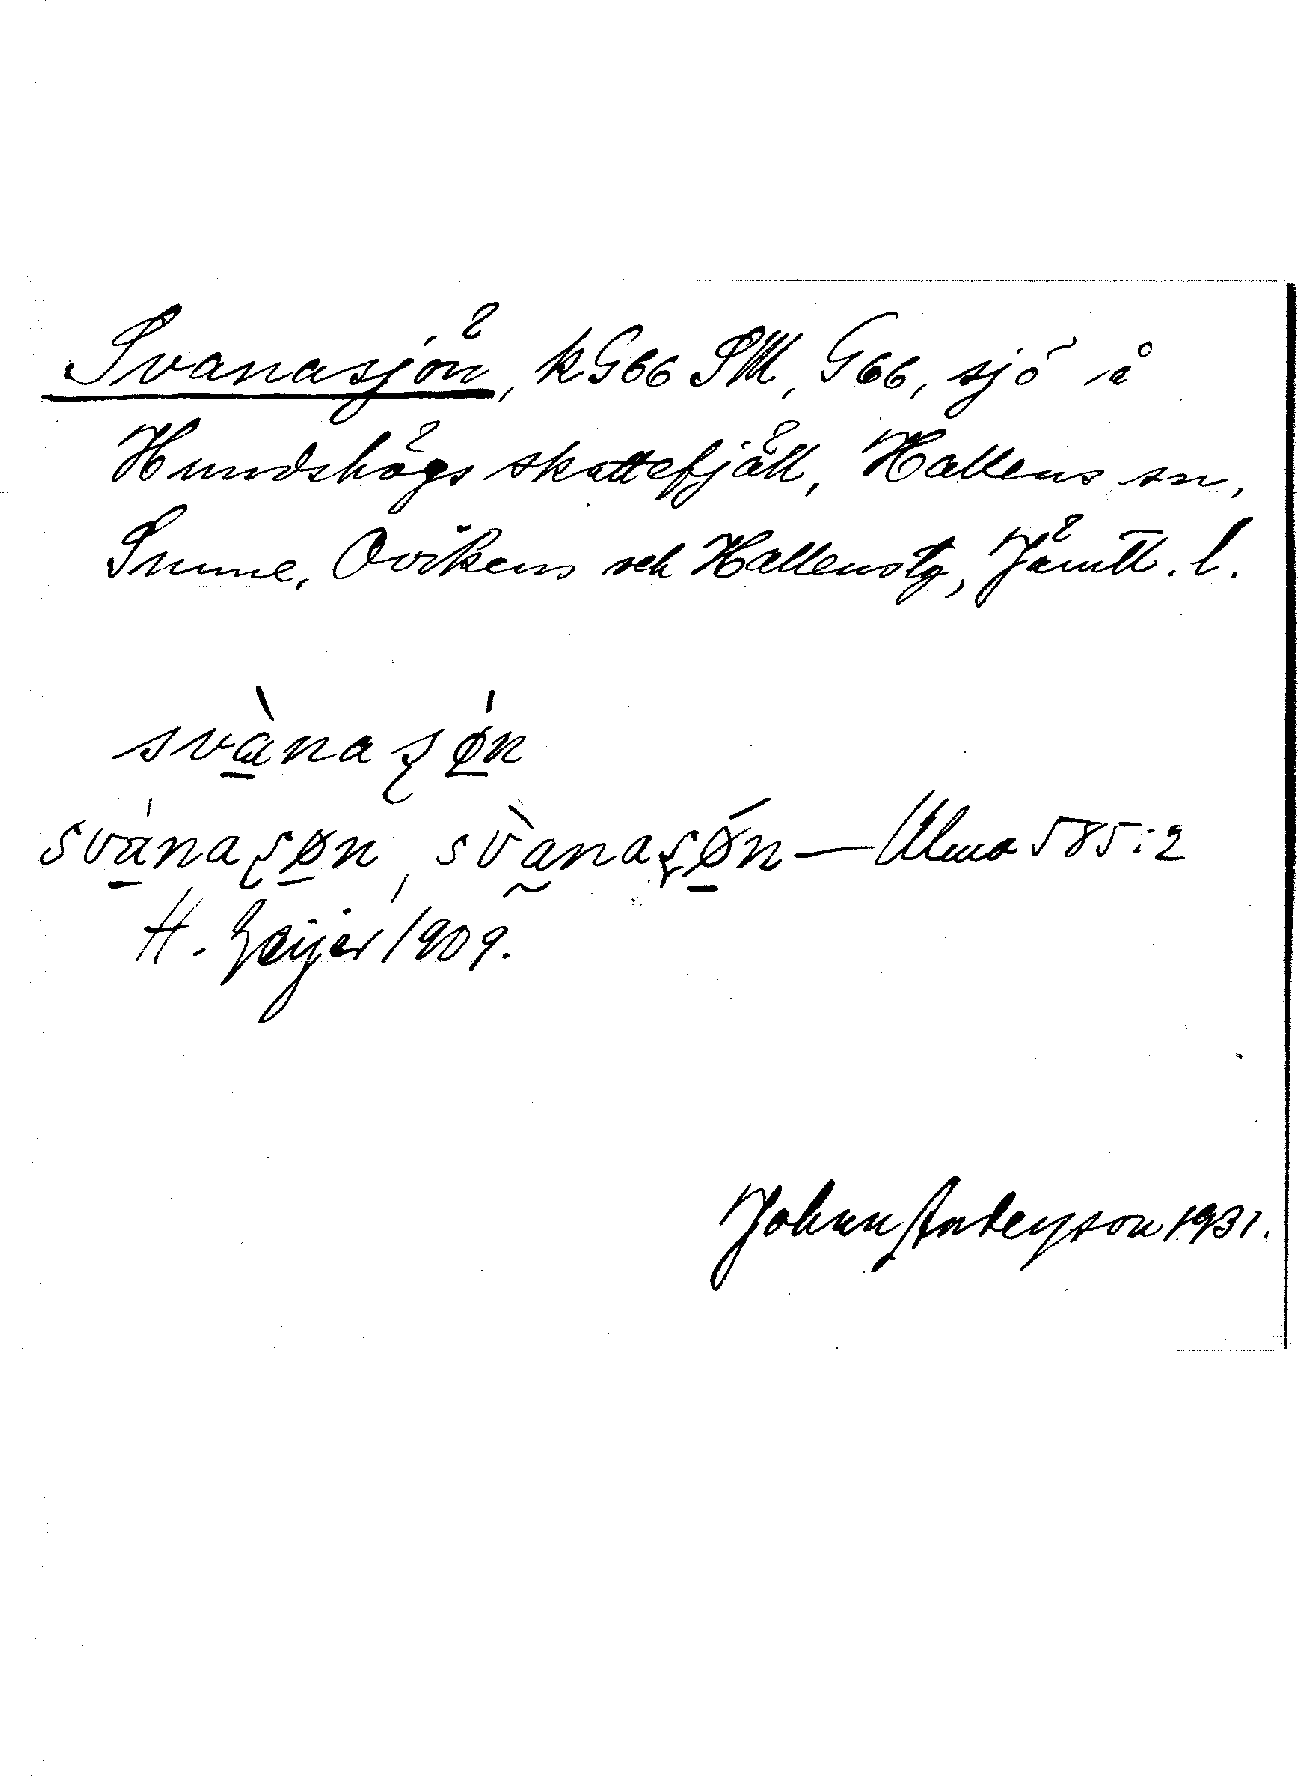 Svanasjön, kG66 SM, G66, sjö å
Hundshögs skattefjäll, Hallens sn,
Sunne, Ovikens och Hallens tg, Jämtl. l.
svànaʂǿn
svánaʂøn, svànaʂǿn — Ulma 585:2
H. Geijer 1909.
Johan Anderson 1931.